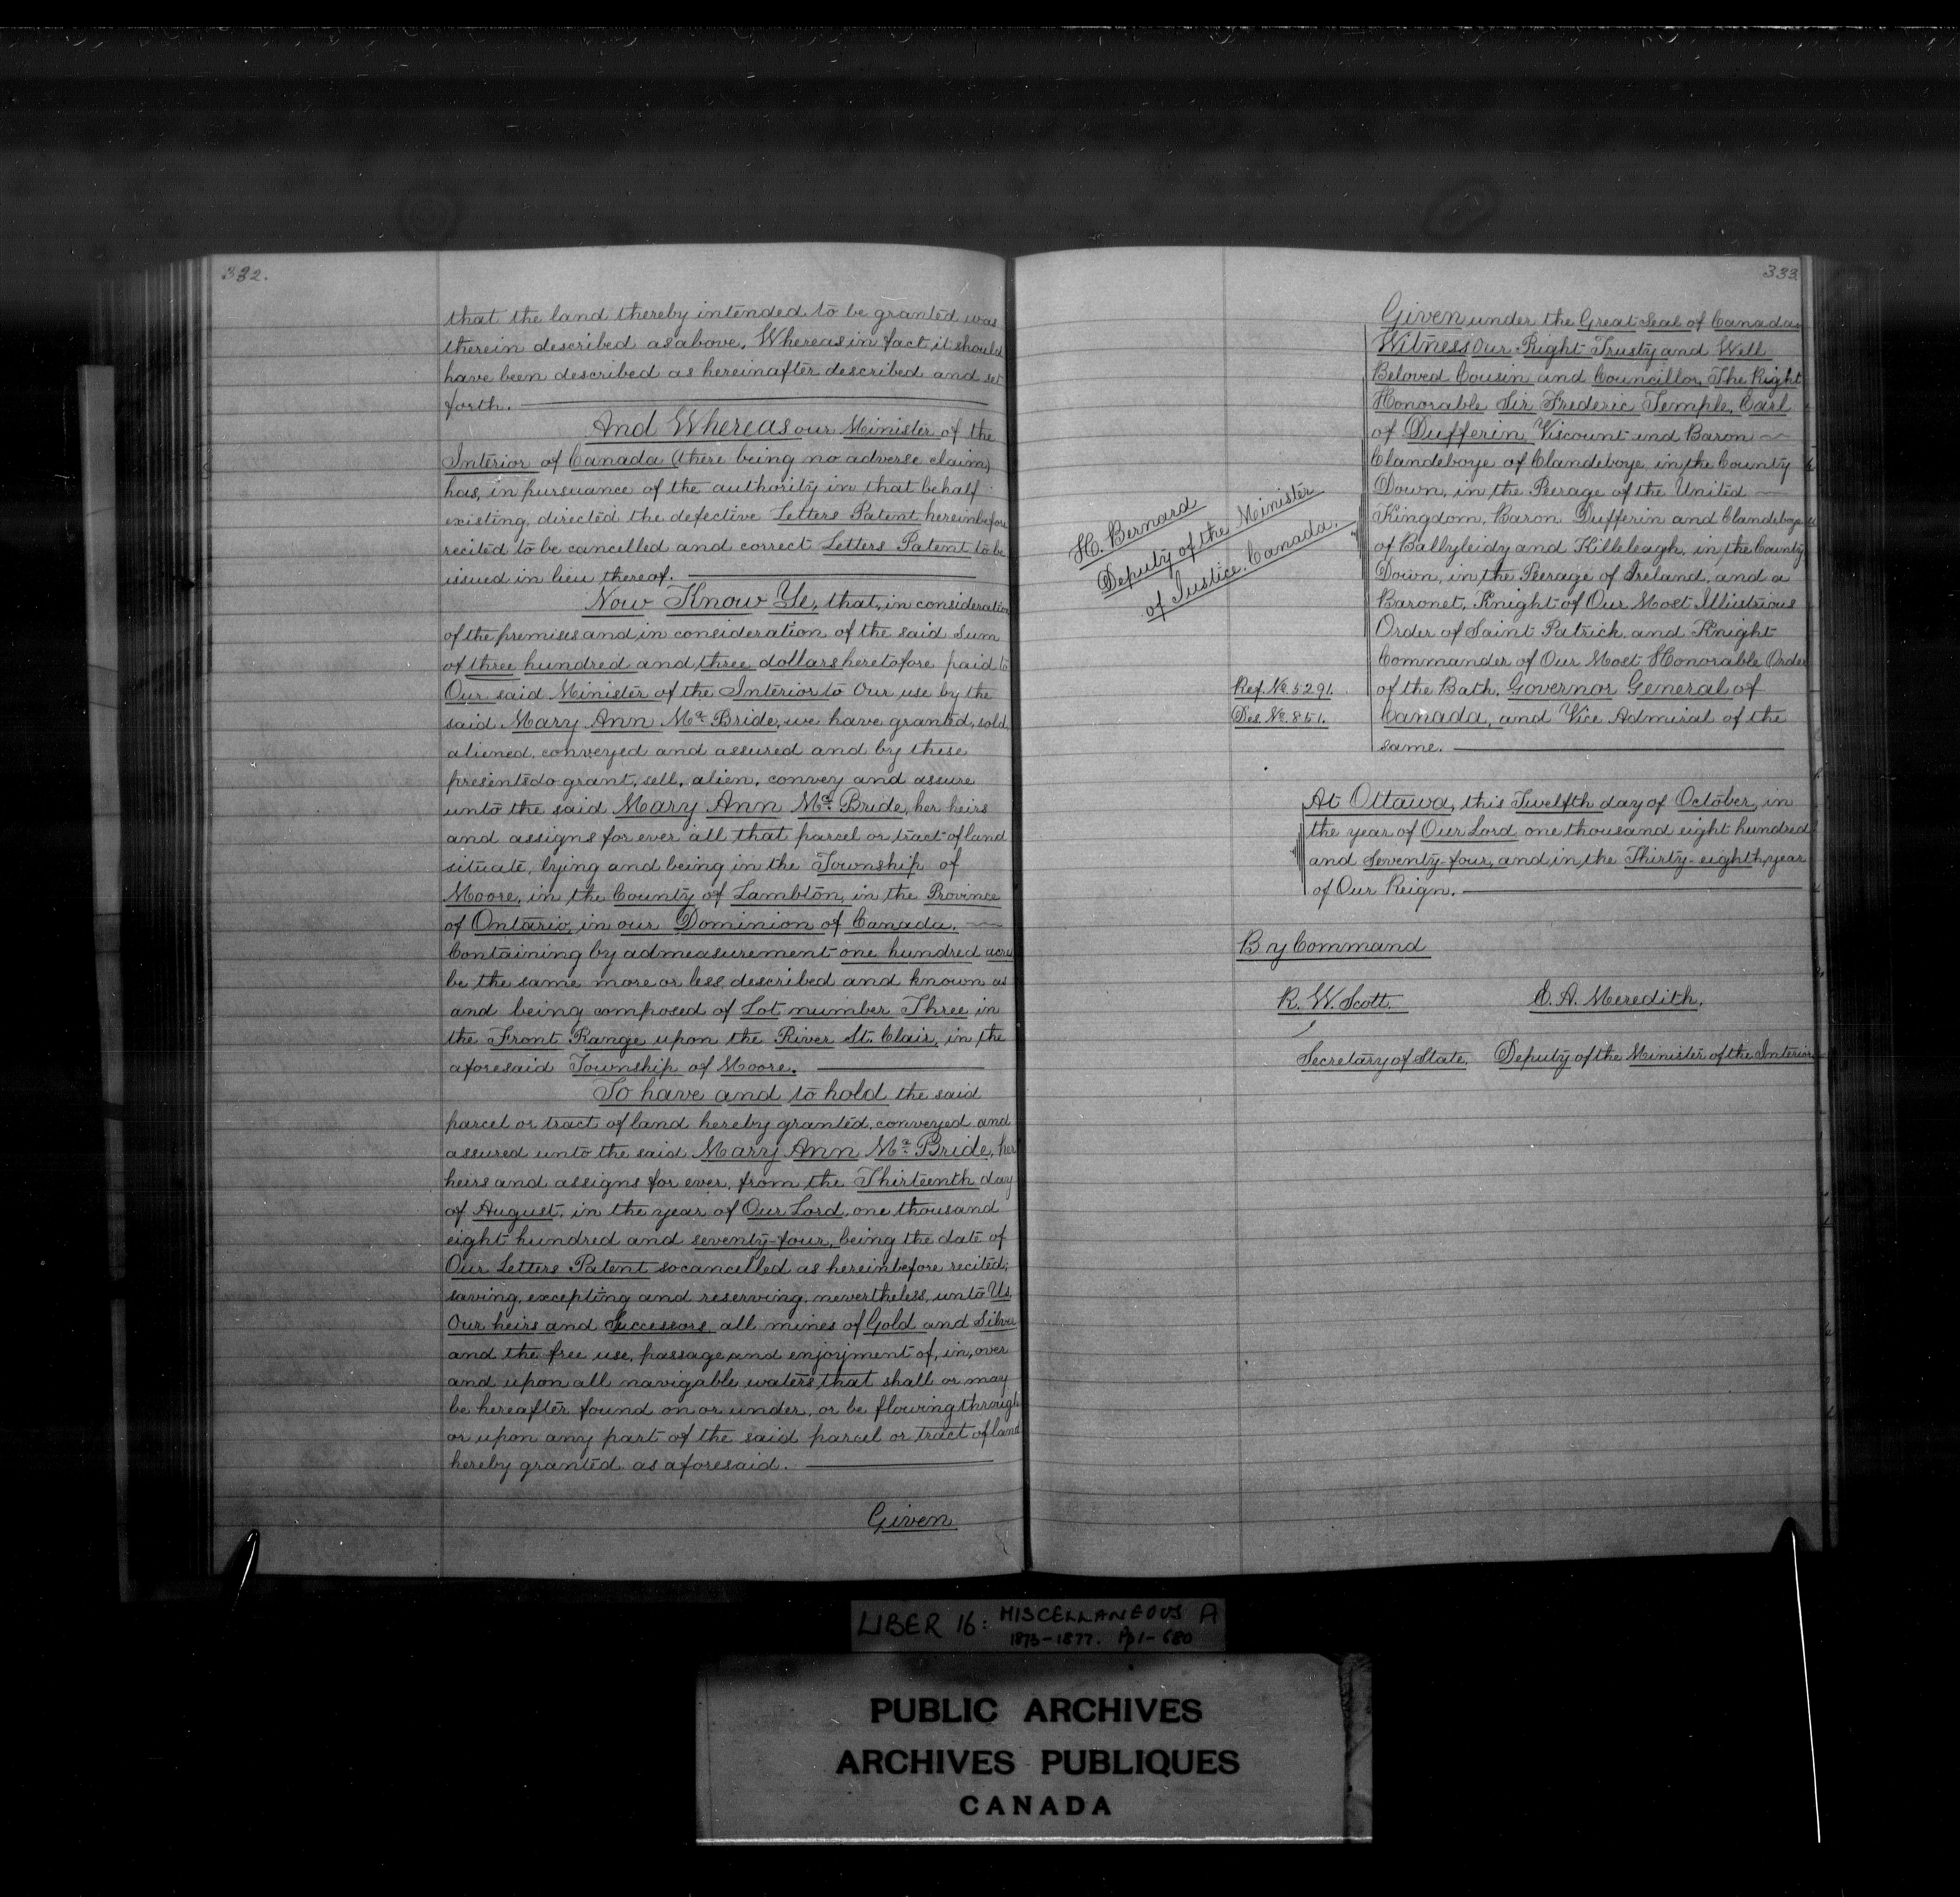 332.
that the land thereby intended to be granted was
therein described as above, Whereas in fact it should
have been described as hereinafter described and set
forth.
And Whereas our Minister of the
Interior of Canada (there being no adverse claim)
has, in pursuance of the authority in that behalf
existing, directed the defective Letters Patent hereinbefore
recited to be cancelled and correct Letters Patent to be
issued in lieu thereof.
Now Know Ye, that, in consideration
of the premises and in consideration of the said Sum
of three hundred and three dollars heretofore paid to
Our said Minister of the Interior to Our use by the
said Mary Ann Mc Bride, we have granted, sold,
aliened, conveyed and assured and by these
presents do grant, sell, alien, convey and assure
unto the said Mary Ann Mc Bride, her heirs
and assigns for ever all that parcel or tract of land
situate, lying and being in the Township of
Moore, in the County of Lambton, in the Province
of Ontario, in our Dominion of Canada.
Containing by admeasurement one hundred acres
be the same more or less, described and known as
and being composed of Lot number Three in
the Front Range upon the River St. Clair, in the
aforesaid Township of Moore.
To have and to hold the said
parcel or tract of land hereby granted, conveyed and
assured unto the said Mary Ann Mc Bride, her
heirs and assigns for ever, from the Thirteenth day
of August, in the year of Our Lord, one thousand
eight hundred and seventy-four, being the date of
Our Letters Patent so cancelled as hereinbefore recited;
saving, excepting and reserving, nevertheless, unto Us
Our heirs and Successors, all mines of Gold and Silver
and the free use, passage and enjoyment of, in, over
and upon all navigable waters that shall or may
be hereafter found on or under, or be flowing through
or upon any part of the said parcel or tract of land
hereby granted as aforesaid.
Given
333
Given under the Great Seal of Canada
Witness Our Right Trusty and Well
Beloved Cousin and Councillor, The Right
Honorable Sir Frederic Temple, Earl
of Dufferin, Viscount and Baron
Clandeboye of Clandeboye, in the County
Down, in the Peerage of the United
Kingdom, Baron Dufferin and Clandeboye
of Ballyleidy and Killeleagh, in the County
Down, in the Peerage of Ireland, and a
Baronet, Knight of Our Most Illustrious
Order of Saint Patrick, and Knight
Commander of Our Most Honorable Order
of the Bath, Governor General of
Canada, and Vice Admiral of the
same.
H. Bernard
Deputy of the Minister
of Justice, Canada.
Ref. No. 5291.
Des. No. 851.
At Ottawa, this Twelfth day of October, in
the year of Our Lord one thousand eight hundred
and Seventy-four, and in the Thirty-eighth year
of Our Reign.
By Command
R. W. Scott
E. A. Meredith,
Secretary of State.
Deputy of the Minister of the Interior
LIBER 16: MISCELLANEOUS A
1873-1877. Pp 1-680
PUBLIC ARCHIVES
ARCHIVES PUBLIQUES
CANADA